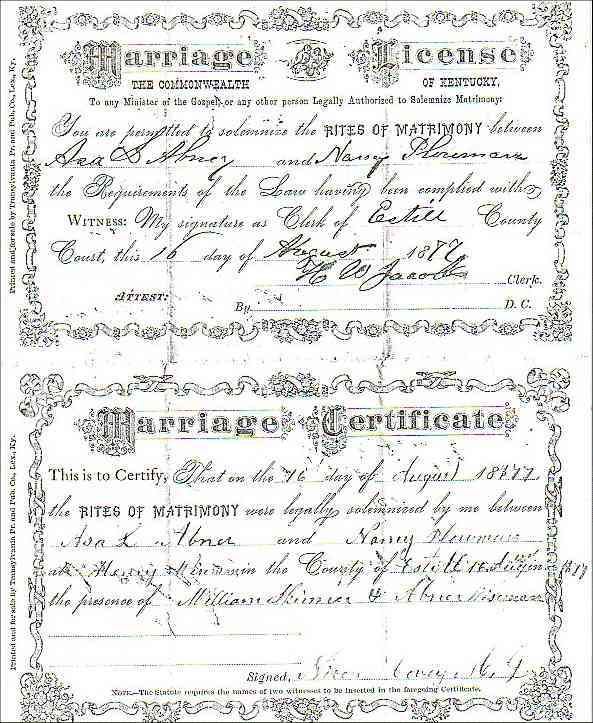 Marriage License
THE COMMONWEALTH OF KENTUCKY,
To any Minister of the Gospel, or any other person Legally Authorized to Solemnize Matrimony:
You are permitted to solemnize the RITES OF MATRIMONY between
Asa Abney and Nancy
the Requirements of the Law having been complied with
WITNESS: My signature as Clerk of Estill County
Court, this 16 day of August 1877
H W Jacobs Clerk.
ATTEST: By D. C.
Printed and for sale by Transylvania Pr. and Pub. Co., Lex, Ky.
Marriage Certificate
This is to Certify, That on the 16 day of August 1877
the RITES OF MATRIMONY were legally solemnized by me between
Asa Abner and Nancy
at Henry in the County of Estill
the presence of William Skinner & Abner Wiseman
Signed,
NOTE.—The Statute requires the names of two witnesses to be inserted in the foregoing Certificate.
Printed and for sale by Transylvania Pr. and Pub. Co., Lex, Ky.